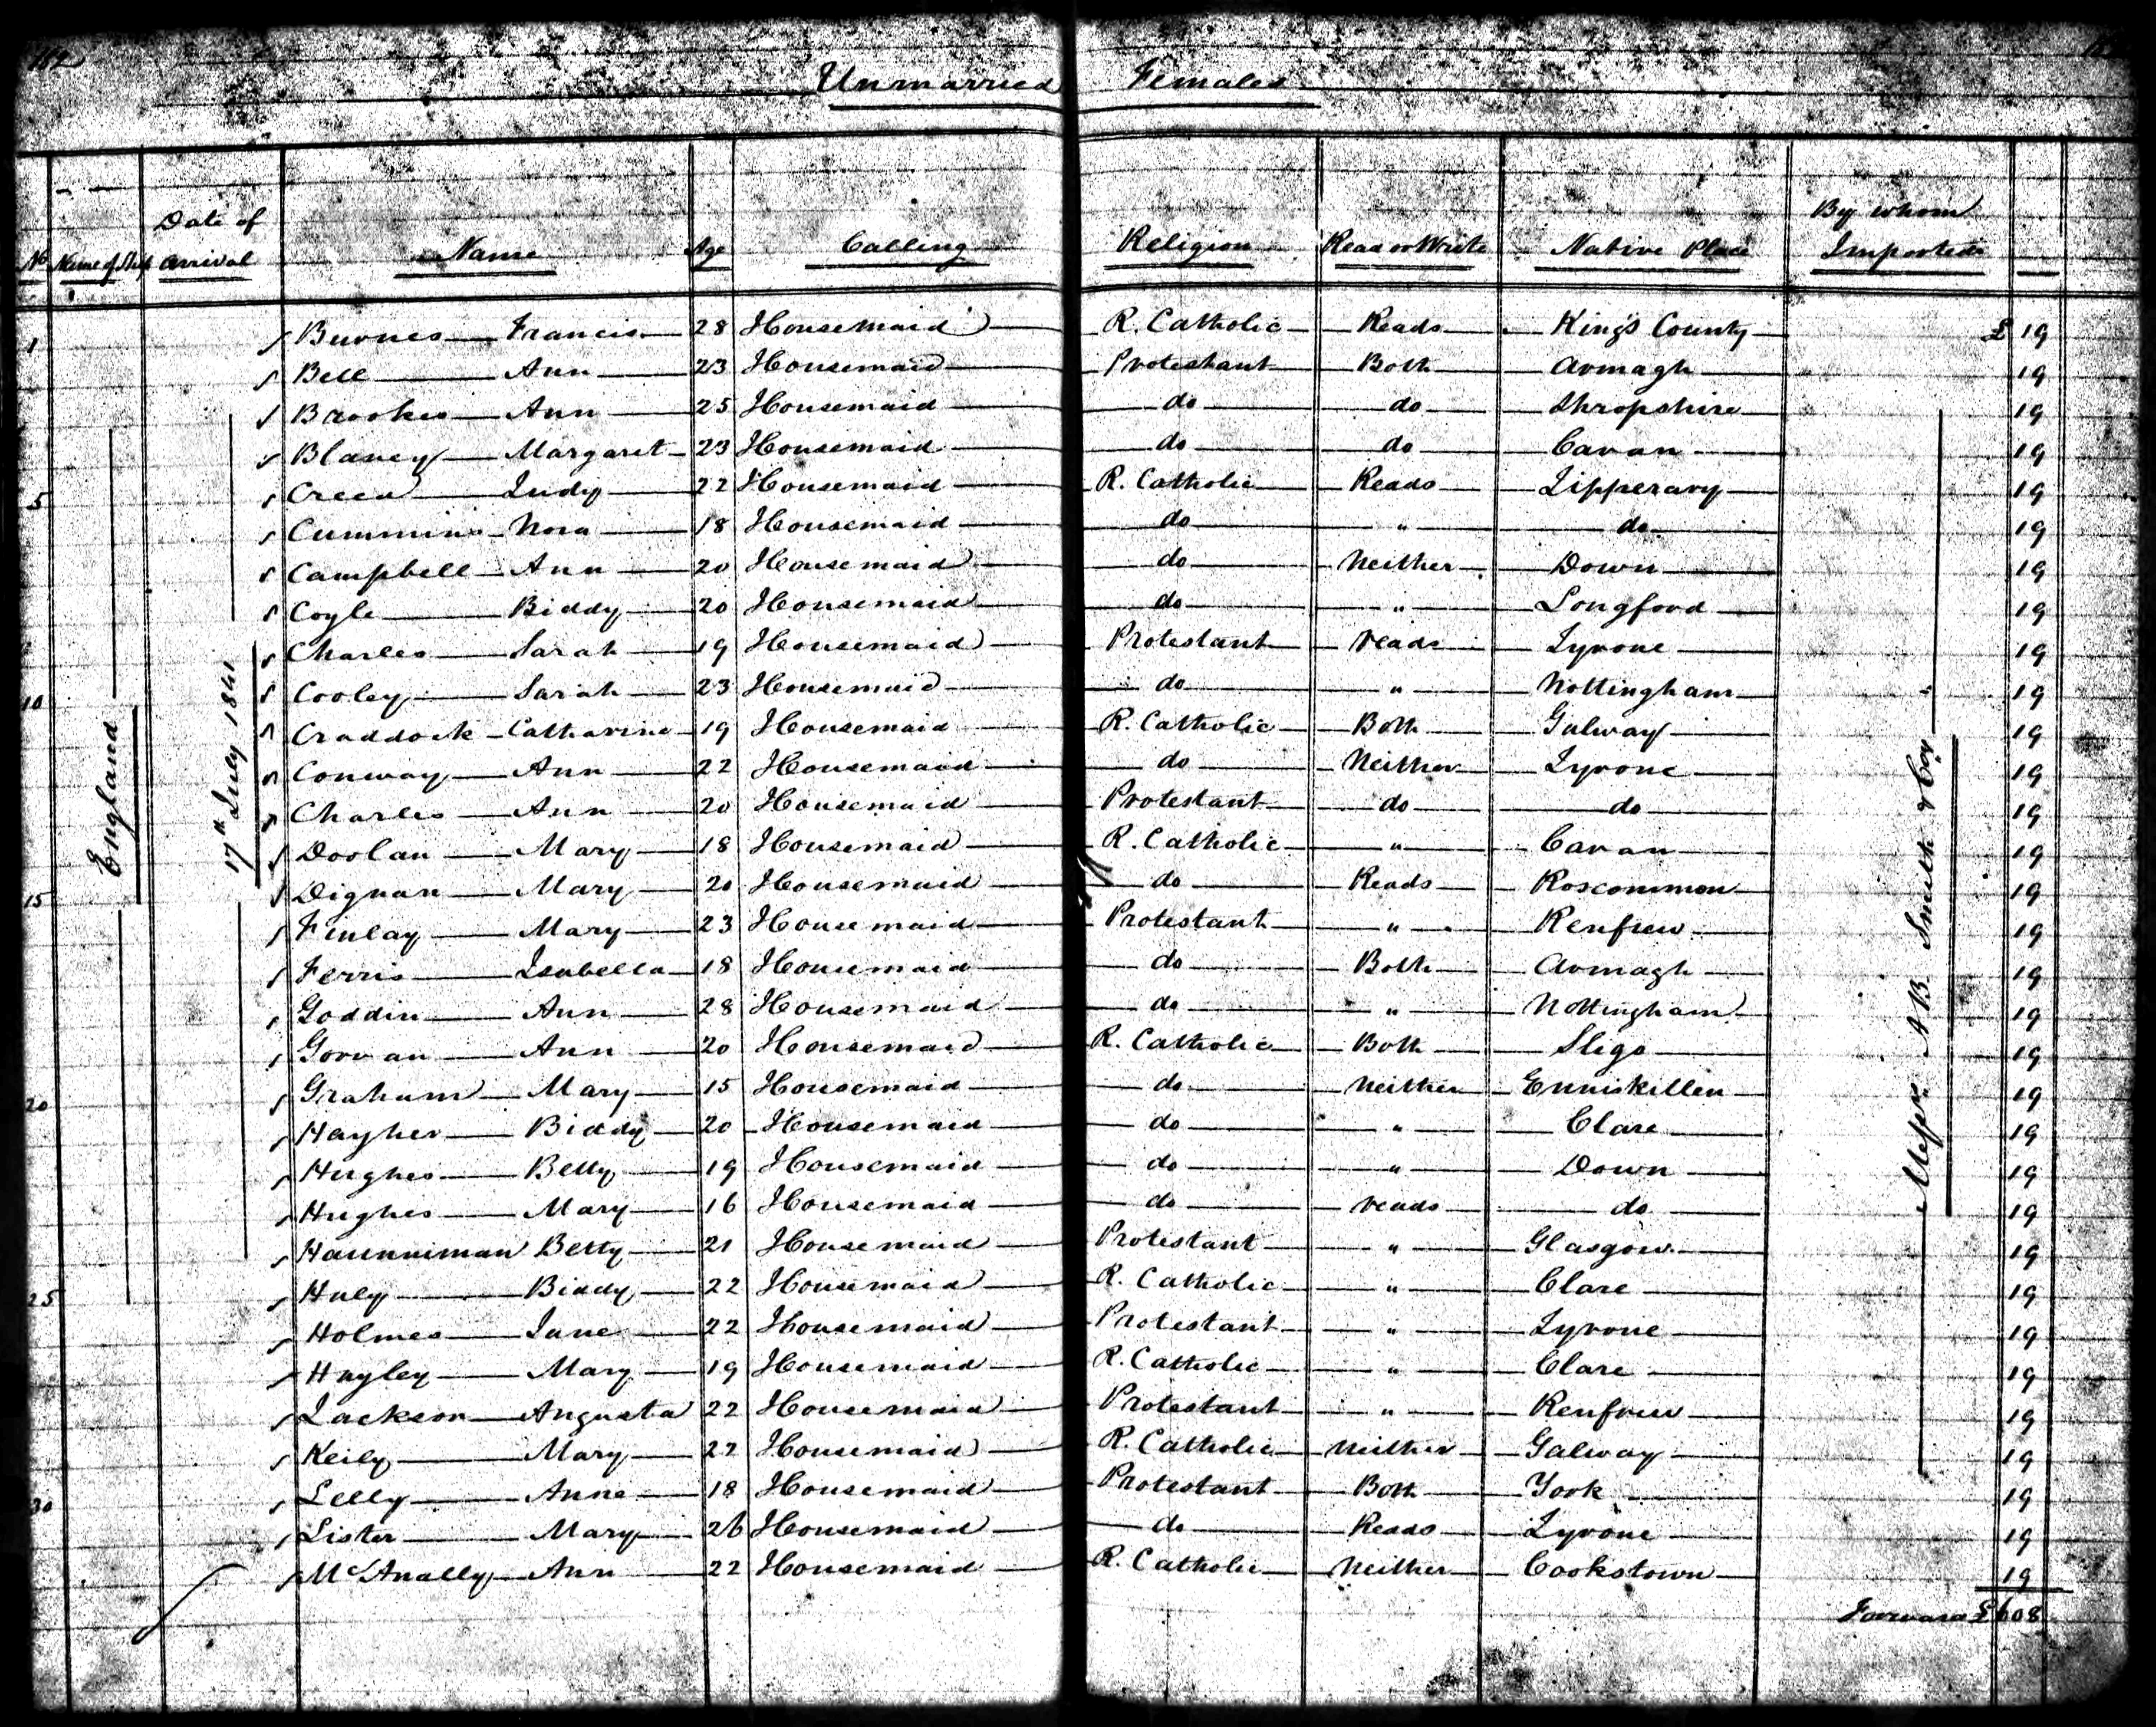 162
Unmarried Females
No Name of Ship Date of Arrival Name Age Calling Religion Read or Write Native Place By whom Imported
England
17th July 1841
Messrs A B Smith & Coy
1 Burnes Francis 28 Housemaid R. Catholic Reads King's County £ 19
Bell Ann 23 Housemaid Protestant Both Armagh 19
Brookes Ann 25 Housemaid do do Shropshire 19
Blaney Margaret 23 Housemaid do do Cavan 19
5 Creed Judy 22 Housemaid R. Catholic Reads Tipperary 19
Cummins Nora 18 Housemaid do " do 19
Campbell Ann 20 Housemaid do Neither Down 19
Coyle Biddy 20 Housemaid do " Longford 19
Charles Sarah 19 Housemaid Protestant reads Tyrone 19
10 Cooley Sarah 23 Housemaid do " Nottingham 19
Craddock Catharine 19 Housemaid R. Catholic Both Galway 19
Conway Ann 22 Housemaid do Neither Tyrone 19
Charles Ann 20 Housemaid Protestant do do 19
Doolan Mary 18 Housemaid R. Catholic " Cavan 19
15 Dignan Mary 20 Housemaid do Reads Roscommon 19
Finlay Mary 23 Housemaid Protestant " Renfrew 19
Ferris Isabella 18 Housemaid do Both Armagh 19
Goddin Ann 28 Housemaid do " Nottingham 19
Gorman Ann 20 Housemaid R. Catholic Both Sligo 19
20 Graham Mary 15 Housemaid do Neither Enniskillen 19
Hayher Biddy 20 Housemaid do " Clare 19
Hughes Betty 19 Housemaid do " Down 19
Hughes Mary 16 Housemaid do reads do 19
Haunniman Betty 21 Housemaid Protestant " Glasgow 19
25 Huly Biddy 22 Housemaid R. Catholic " Clare 19
Holmes Jane 22 Housemaid Protestant " Tyrone 19
Hayley Mary 19 Housemaid R. Catholic " Clare 19
Jackson Augusta 22 Housemaid Protestant " Renfrew 19
Keily Mary 22 Housemaid R. Catholic Neither Galway 19
30 Lelly Anne 18 Housemaid Protestant Both York 19
Lister Mary 26 Housemaid do Reads Tyrone 19
McAnally Ann 22 Housemaid R. Catholic Neither Cookstown 19
Forward £608